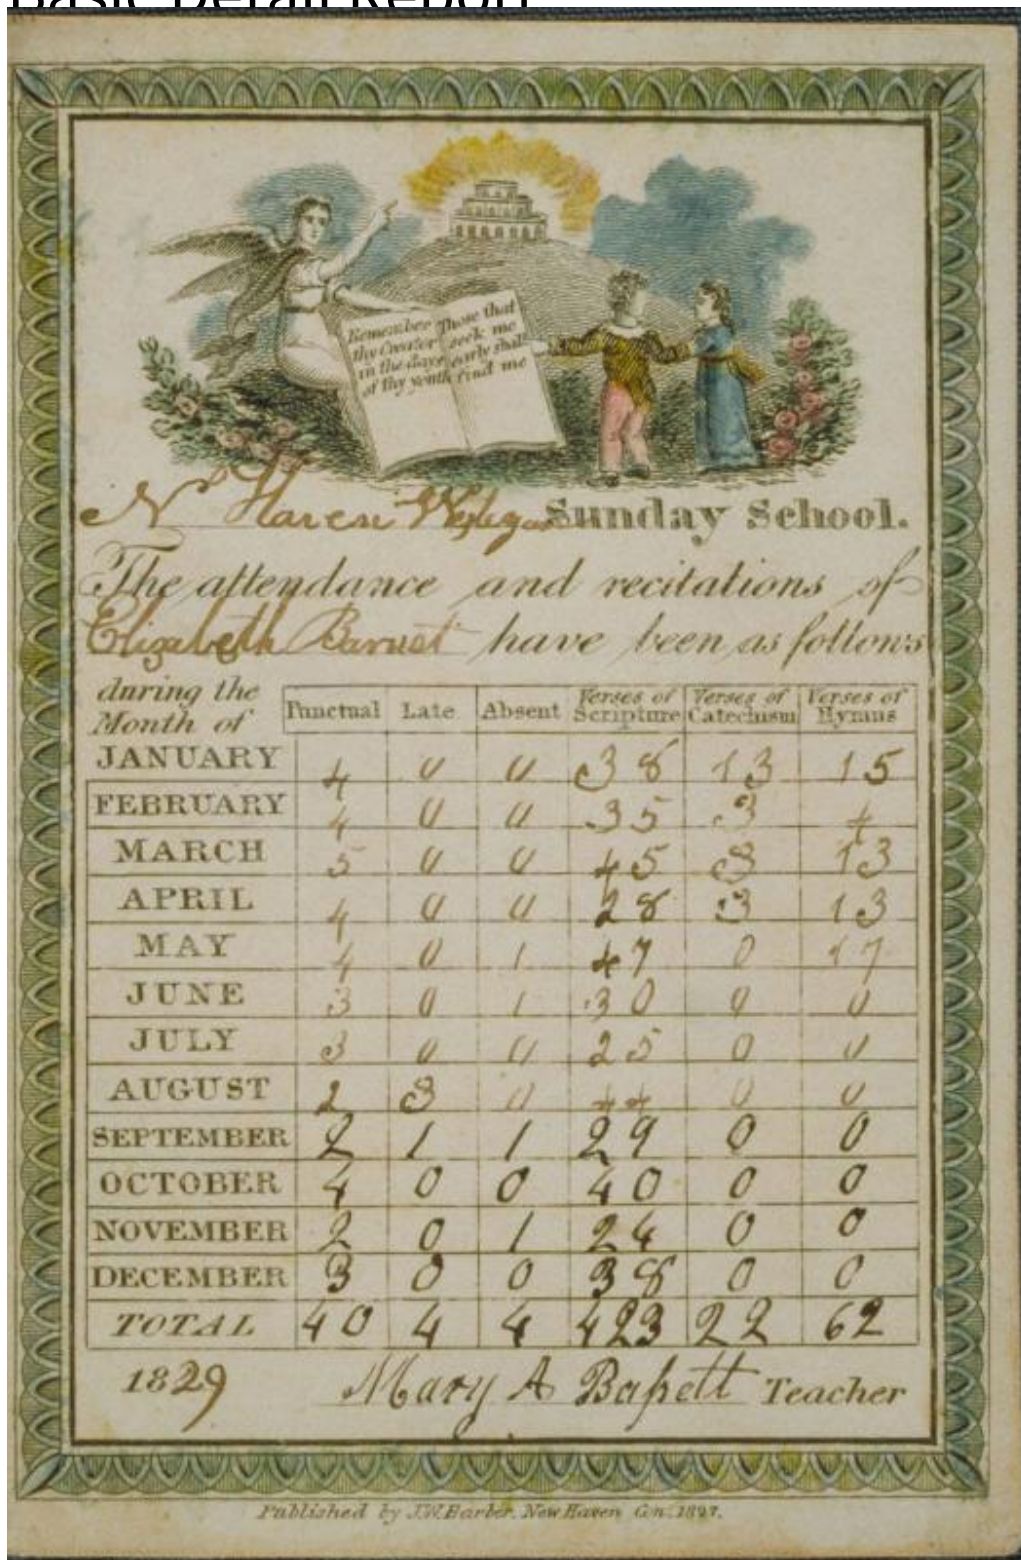 Basic Detail Report
Remember Those that
thy Creator seek me
in the days early shall
of thy youth find me
N Haven Wesleyan Sunday School.
The attendance and recitations of
Elizabeth Barnet have been as follows
during the Month of Punctual Late Absent Verses of Scripture Verses of Catechism Verses of Hymns
JANUARY 4 0 0 38 13 15
FEBRUARY 4 0 0 35 3 4
MARCH 5 0 0 45 3 13
APRIL 4 0 0 28 3 13
MAY 4 0 1 47 0 17
JUNE 3 0 1 30 0 0
JULY 3 0 0 25 0 0
AUGUST 2 3 0 44 0 0
SEPTEMBER 2 1 1 29 0 0
OCTOBER 4 0 0 40 0 0
NOVEMBER 2 0 1 24 0 0
DECEMBER 3 0 0 38 0 0
TOTAL 40 4 4 423 22 62
1829 Mary A Baſsett Teacher
Published by J.W. Barber, New Haven Con. 1827.